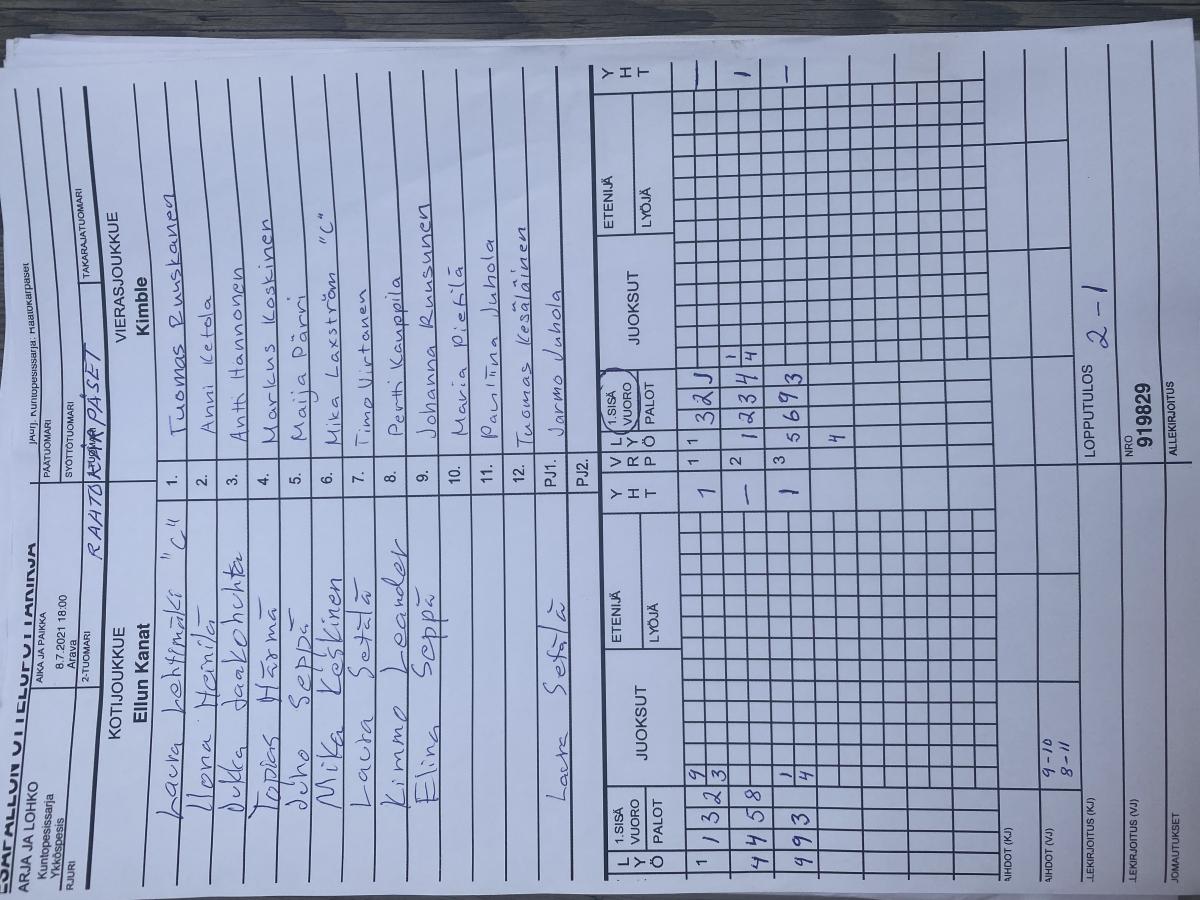 PESÄPALLON OTTELUPÖYTÄKIRJA
SARJA JA LOHKO
Kuntopesissarja
Ykköspesis
AIKA JA PAIKKA
8.7.2021 18:00
Arava
PÄÄTUOMARI
SYÖTTÖTUOMARI
2-TUOMARI
TAKARAJATUOMARI
RAATOKÄRPÄSET
KOTIJOUKKUE
Ellun Kanat
VIERASJOUKKUE
Kimble
Laura Lehtimäki "C"
1. Tuomas Ruuskanen
Ilona Heinilä
2. Anni Ketola
Jukka Jaakohuhta
3. Antti Hannonen
Topias Härmä
4. Markus Koskinen
Juho Seppä
5. Maija Pärri
Mika Keskinen
6. Mika Laxström "C"
Laura Setälä
7. Timo Virtanen
Kimmo Leander
8. Pertti Kauppila
Elina Seppä
9. Johanna Ruusunen
10. Maria Pietilä
11. Pauliina Juhola
12. Tuomas Kesäläinen
Laura Setälä
PJ1. Jarmo Juhola
PJ2.
L Y Ö
1.SISÄ VUORO PALOT
JUOKSUT
ETENIJÄ
LYÖJÄ
Y H T
V R P
L Y Ö
1.SISÄ VUORO PALOT
JUOKSUT
ETENIJÄ
LYÖJÄ
Y H T
1 1 3 2 9 3 1
1 1 3 2 1 –
4 4 5 8 –
2 1 2 3 4 1 4 1
9 9 3 1 4 1
3 5 6 9 3 –
4
9-10
8-11
LOPPUTULOS
2-1
NRO
919829
ALLEKIRJOITUS